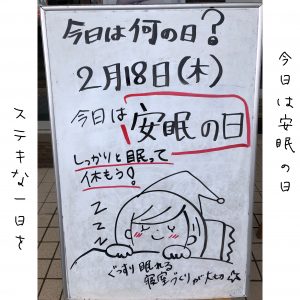 今日は何の日?
2月18日(木)
今日は安眠の日
しっかりと眠って
休もう!
Z Z Z
ぐっすり眠れる
寝室づくりが大切
今日は安眠の日
ステキな一日を